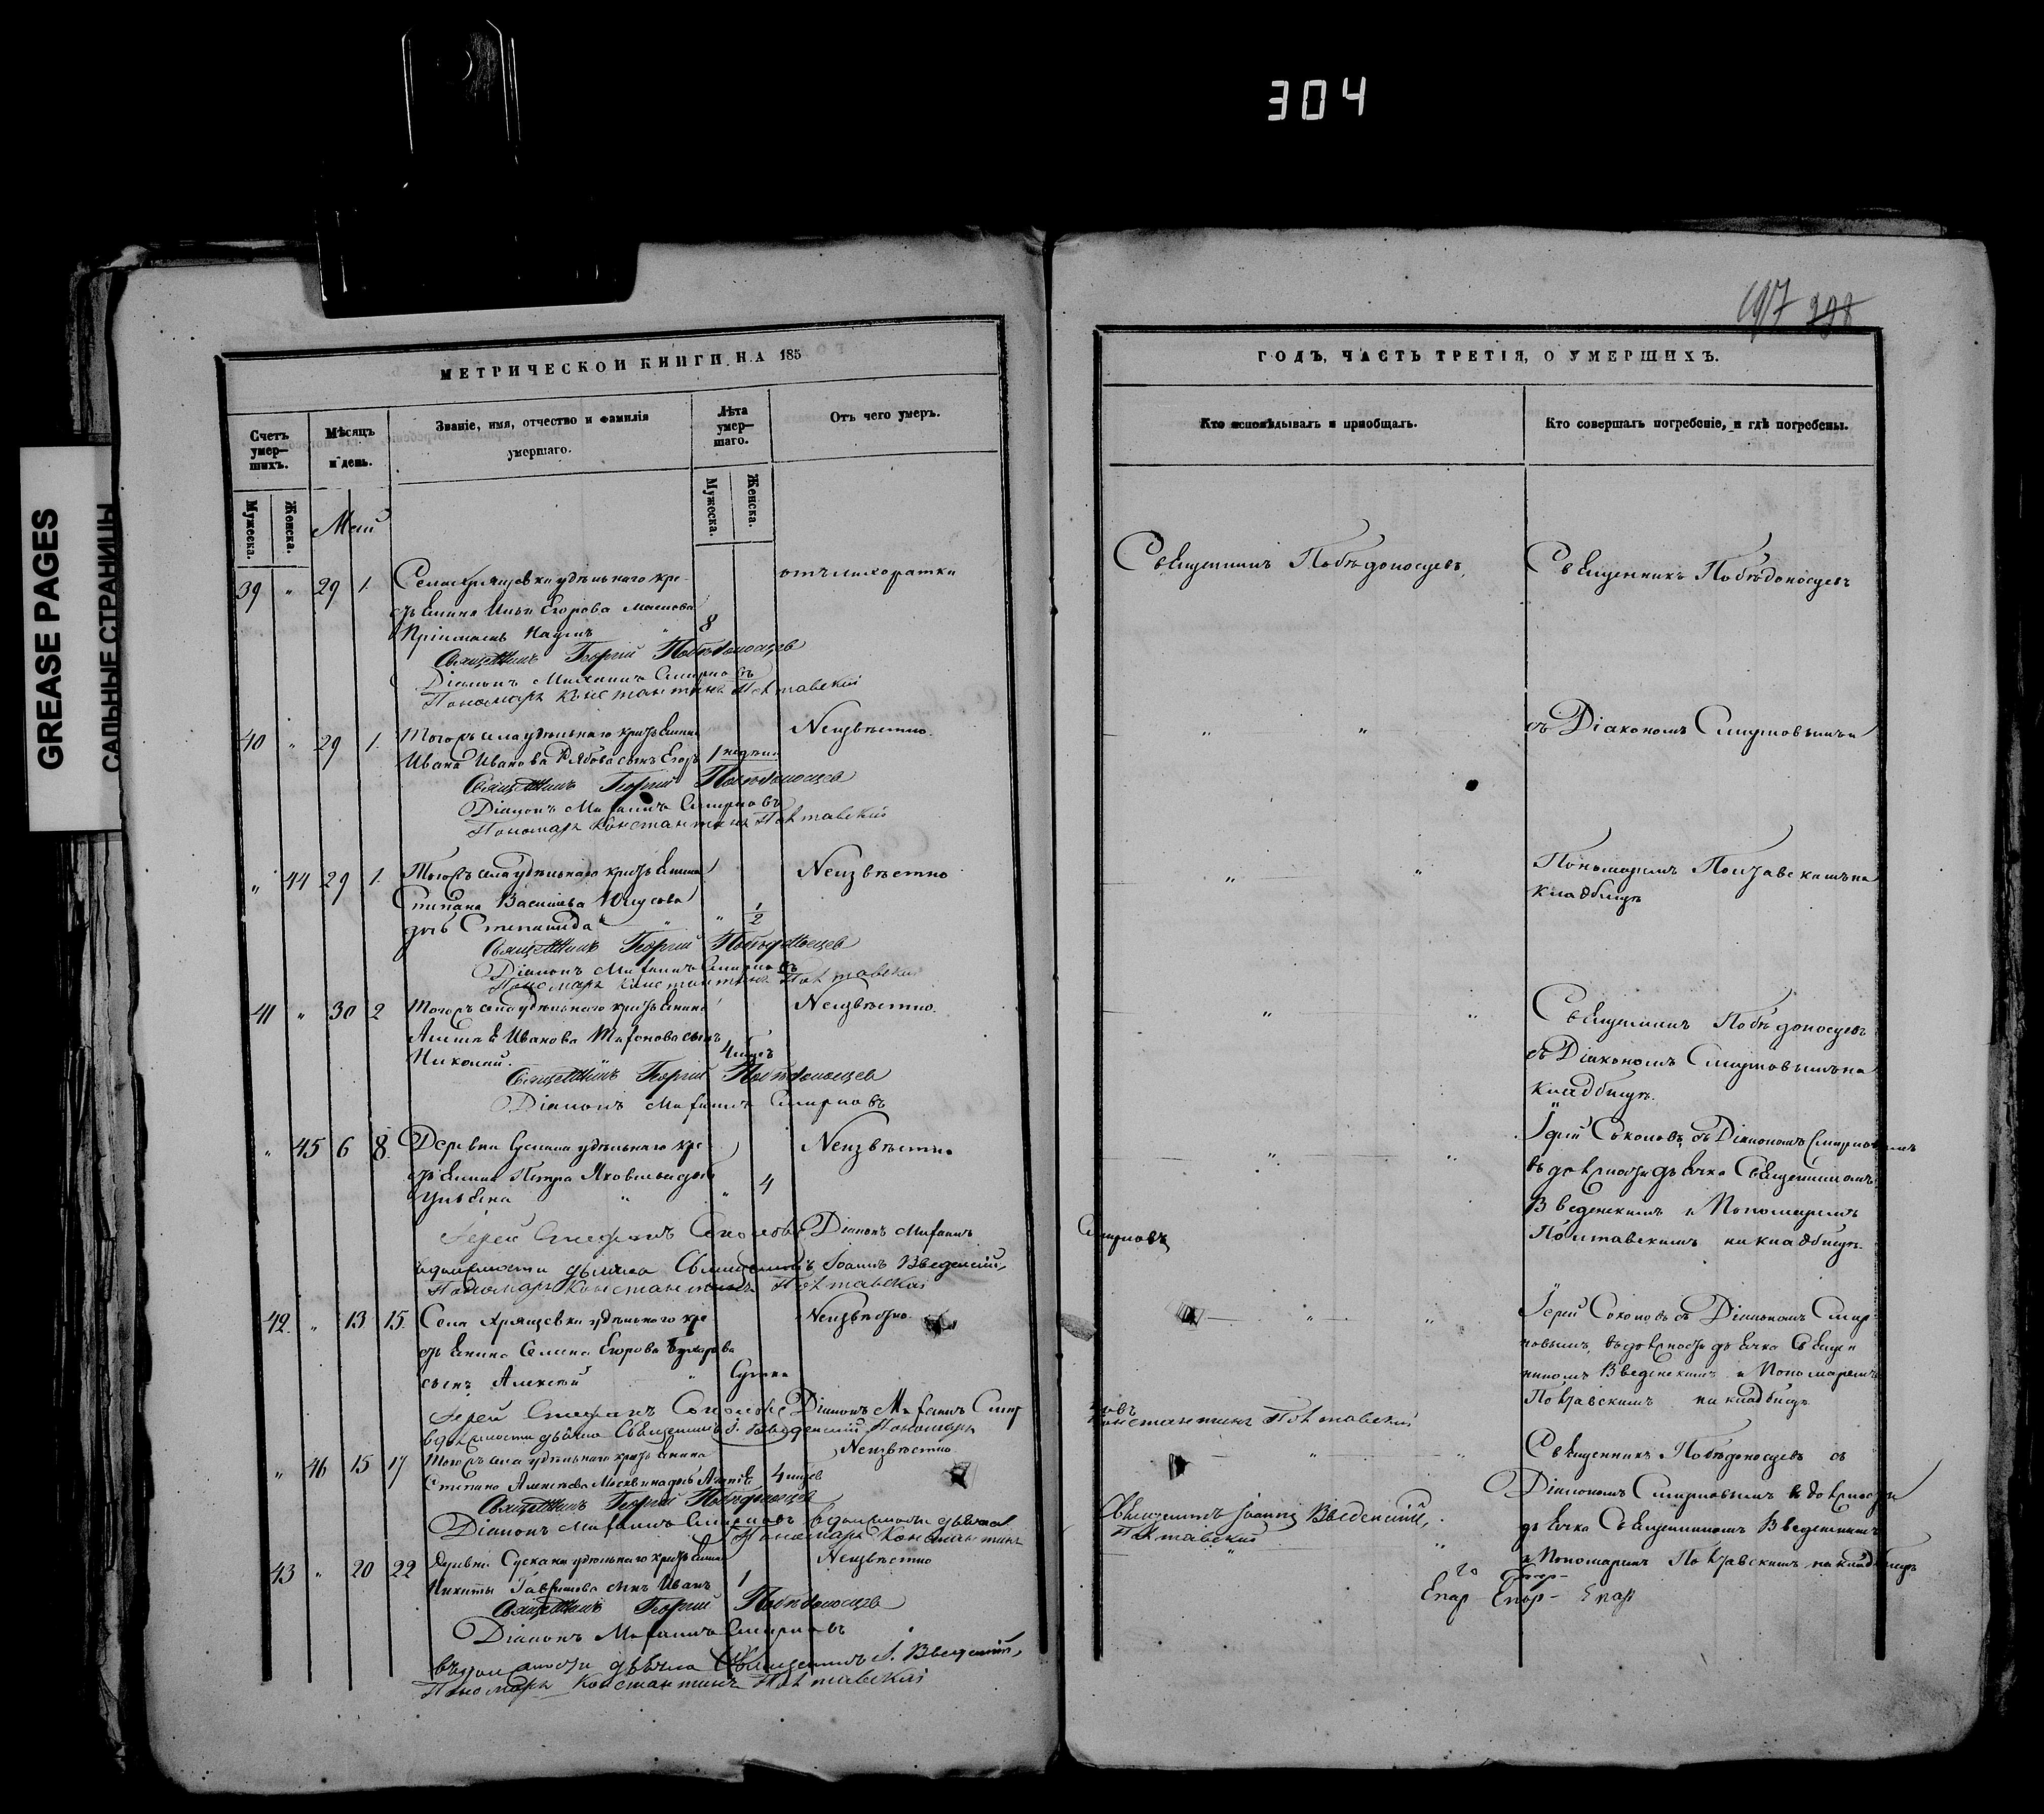 304
GREASE PAGES
САЛЬНЫЕ СТРАНИЦЫ
МЕТРИЧЕСКОЙ КНИГИ НА 185
Счетъ умер-шихъ.
Мѣсяцъ и день.
Званіе, имя, отчество и фамилія умершаго.
Лѣта умер-шаго.
Отъ чего умеръ.
Мужеска.
Женска.
Мужеска.
Женска.
Май
39 " 29 1. Села Хрящевки удѣльнаго кре- отъ лихоратки
стьянина Ильи Егорова
Пріимышъ Наумъ " 8
Священникъ Георгій Побѣдоносцевъ
Діаконъ Михаилъ Смирновъ
Пономарь Константинъ Полтавскій
40 " 29 1. Тогожъ села удѣльнаго крестьянина Неизвѣстно.
Ивана Иванова Рябова сынъ Егоръ 1 недѣли
Священникъ Георгій Побѣдоносцевъ
Діаконъ Михаилъ Смирновъ
Пономарь Константинъ Полтавскій
" 44 29 1. Тогожъ села удѣльнаго крестьянина Неизвѣстно
Степана Васильева Юнусова
дочь Степанида " " 1/2
Священникъ Георгій Побѣдоносцевъ
Діаконъ Михаилъ Смирновъ
Пономарь Константинъ Полтавскій
41 " 30 2 Тогожъ села удѣльнаго крестьянина Неизвѣстно.
Иванова сынъ
Николай. 4
Священникъ Георгій Побѣдоносцевъ
Діаконъ Михаилъ Смирновъ
" 45 6 8. Деревни Сускана удѣльнаго кре- Неизвѣстно
стьянина Петра Яковлева дочь
Ульяна " " 4
Іерей Стефанъ Соколовъ Діаконъ Михаилъ
в должности дьячка Священникъ Іоаннъ Введенскій,
Пономарь Константинъ Полтавскій
42. " 13 15. Села Хрящевки удѣльнаго кре- Неизвѣстно.
стьянина Егорова
сынъ Алексѣй " Сутки
Іерей Стефанъ Соколовъ Діаконъ Михаилъ Смир
в должности дьячка Священникъ І. Введенскій Пономарь
" 46 15 17 Тогожъ села удѣльнаго крестьянина Неизвѣстно
Степана Алексѣева Москвина дочь 4
Священникъ Георгій Побѣдоносцевъ
Діаконъ Михаилъ Смирновъ в должности дьячка
Пономарь Константинъ
43 " 20 22 Деревни Сускана удѣльнаго крестьянина Неизвѣстно
Никиты Гаврилова сынъ Иванъ 1
Священникъ Георгій Побѣдоносцевъ
Діаконъ Михаилъ Смирновъ
въ должности дьячка Священникъ І. Введенскій,
Пономарь Константинъ Полтавскій
197 298
ГОДЪ, ЧАСТЬ ТРЕТІЯ, О УМЕРШИХЪ.
Кто исповѣдывалъ и пріобщалъ.
Кто совершалъ погребеніе, и гдѣ погребены.
Священникъ Побѣдоносцевъ.
Священникъ Побѣдоносцевъ
" "
съ Діакономъ Смирновымъ и
" "
Пономаремъ Полтавскимъ на
кладбищѣ
" "
Священникъ Побѣдоносцевъ
съ Діакономъ Смирновымъ на
кладбищѣ.
" "
Іерей Соколовъ съ Діакономъ Смирновымъ
въ должности дьячка Священникомъ
Введенскимъ и Пономаремъ
Полтавскимъ на кладбищѣ.
Смирновъ
" "
Іерей Соколовъ съ Діакономъ Смир-
новымъ, въ должности дьячка Священ
никомъ Введенскимъ и Пономаремъ
Полтавскимъ на кладбищѣ
новъ
Константинъ Полтавскій
" "
Священникъ Побѣдоносцевъ съ
Діакономъ Смирновымъ в должности
дьячка Священникомъ Введенскимъ
и Пономаремъ Полтавскимъ на кладбищѣ
Священникъ Іоаннъ Введенскій,
Полтавскій
" "